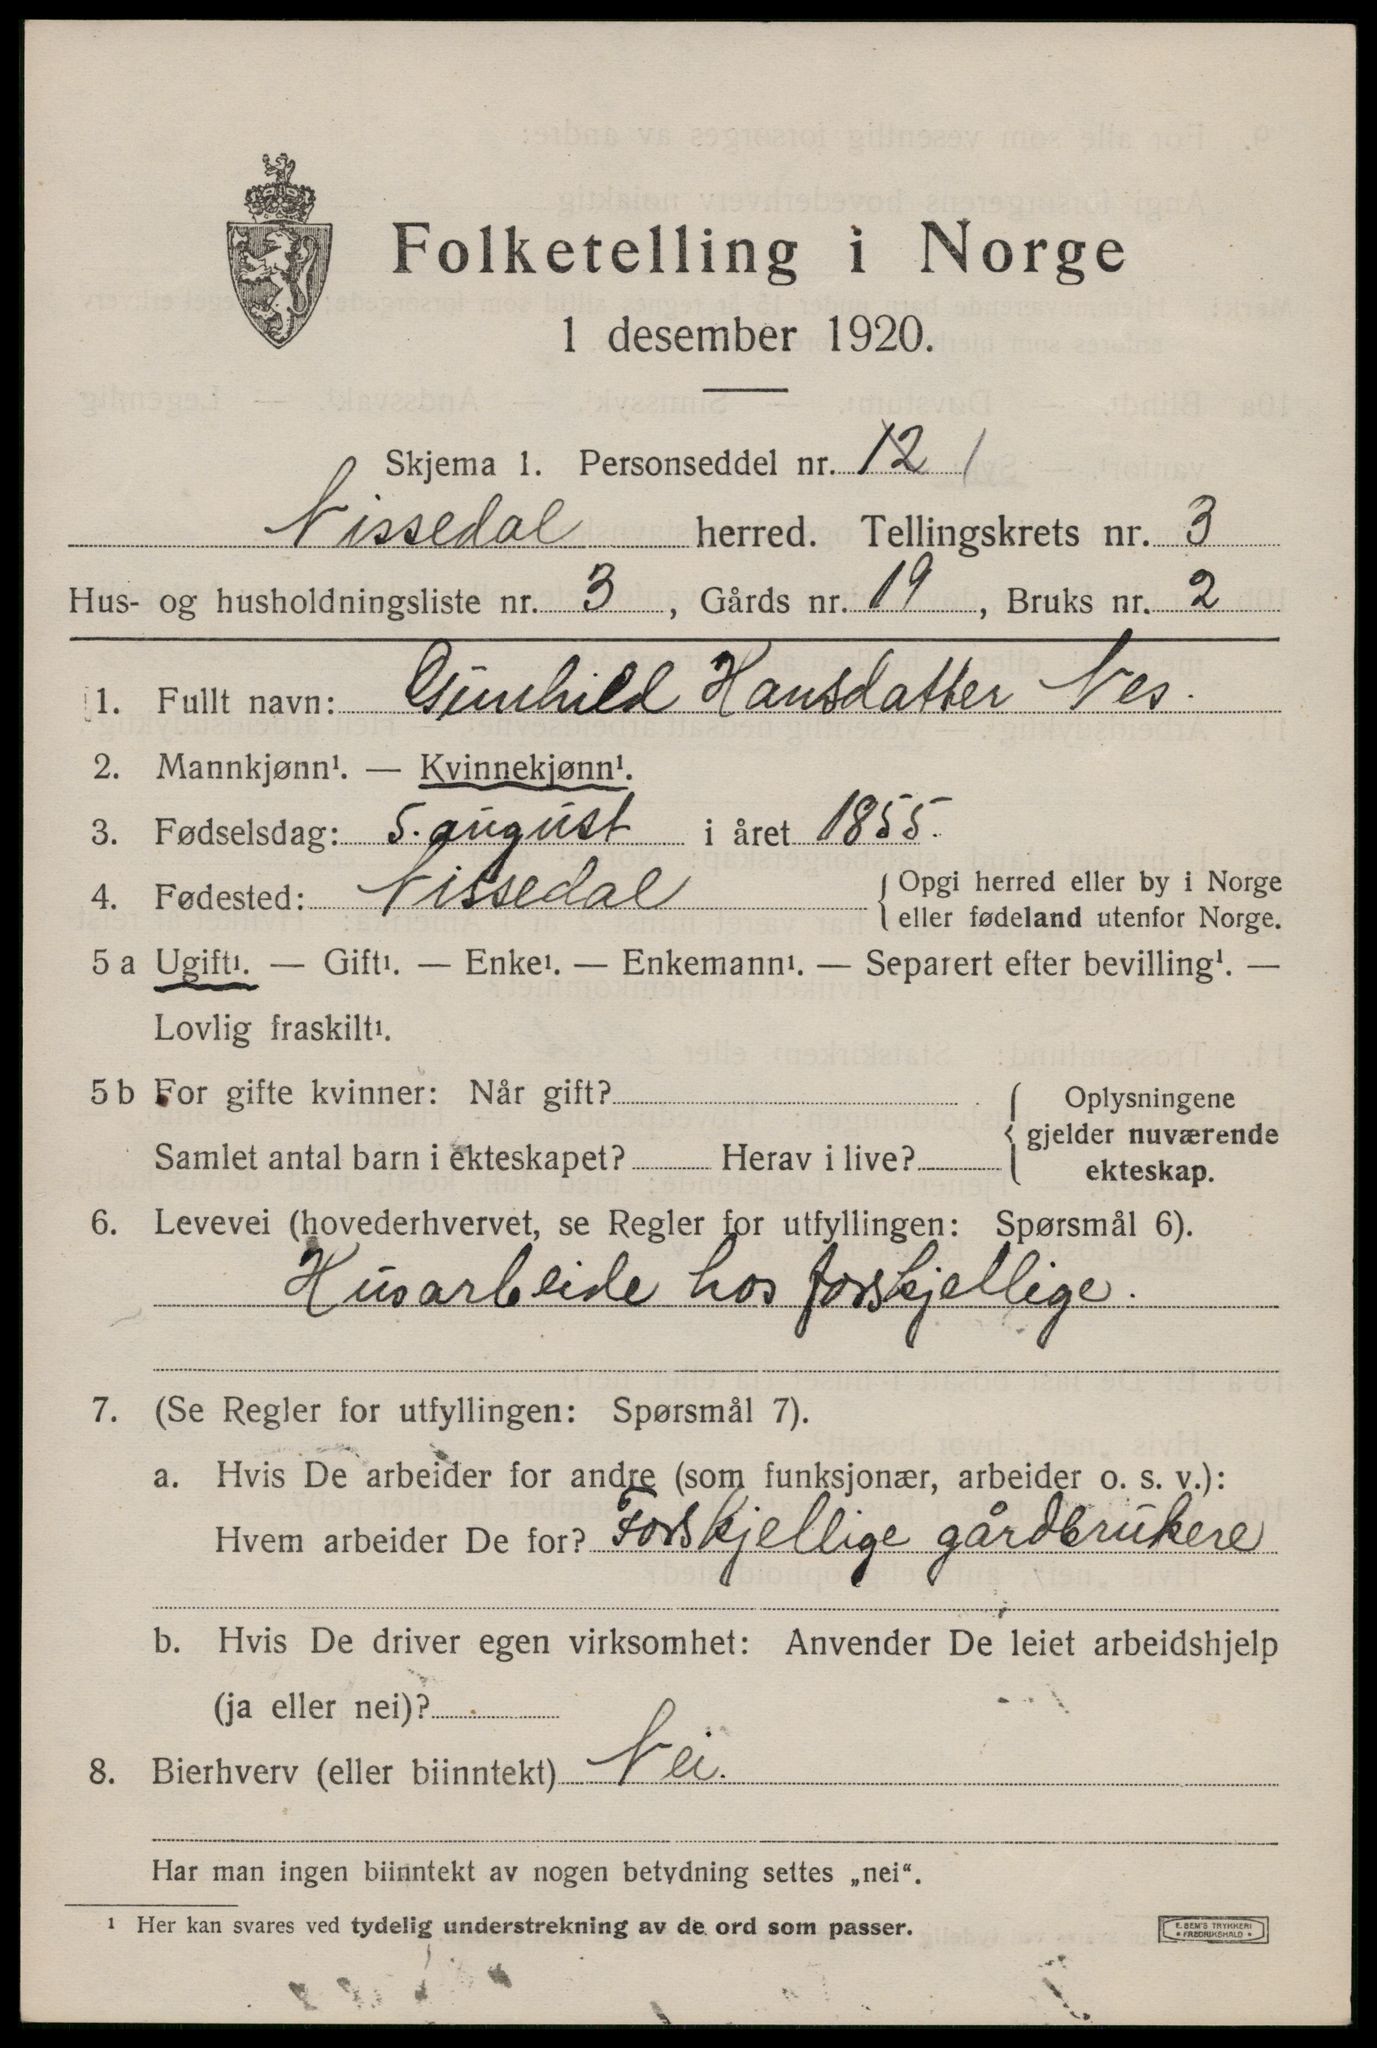 Folketelling i Norge
1 desember 1920.
Skjema 1. Personseddel nr. 12 1
Nissedal herred. Tellingskrets nr. 3
Hus- og husholdningsliste nr. 3, Gårds nr. 19, Bruks nr. 2
1. Fullt navn: Gunhild Hansdatter Nes.
2. Mannkjønn¹. — Kvinnekjønn¹.
3. Fødselsdag: 5. august i året 1855.
4. Fødested: Nissedal { Opgi herred eller by i Norge
eller fødeland utenfor Norge.
5 a Ugift¹. — Gift¹. — Enke¹. — Enkemann¹. — Separert efter bevilling¹. —
Lovlig fraskilt¹.
5 b For gifte kvinner: Når gift?
Samlet antal barn i ekteskapet? Herav i live?
{ Oplysningene
gjelder nuværende
ekteskap.
6. Levevei (hovederhvervet, se Regler for utfyllingen: Spørsmål 6).
Husarbeide hos forskjellige.
7. (Se Regler for utfyllingen: Spørsmål 7).
a. Hvis De arbeider for andre (som funksjonær, arbeider o. s. v.):
Hvem arbeider De for? Forskjellige gårdbrukere
b. Hvis De driver egen virksomhet: Anvender De leiet arbeidshjelp
(ja eller nei)?
8. Bierhverv (eller biinntekt) Nei.
Har man ingen biinntekt av nogen betydning settes „nei“.
¹ Her kan svares ved tydelig understrekning av de ord som passer.
E. SEM'S TRYKKERI
* FREDRIKSHALD *